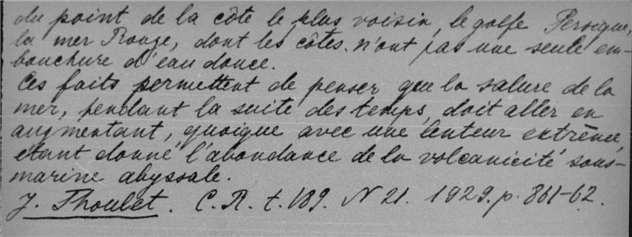 du point de la côte le plus voisin, le golfe Persique,
la mer Rouge, dont les côtes n'ont pas une seule em-
bouchure d'eau douce.
Ces faits permettent de penser que la salure de la
mer, pendant la suite des temps, doit aller en
augmentant, quoique avec une lenteur extrême,
étant donné l'abondance de la volcanicité sous-
marine abyssale.
J. Thoulet. C.R. t. 189. N 21. 1929. p. 861-62.